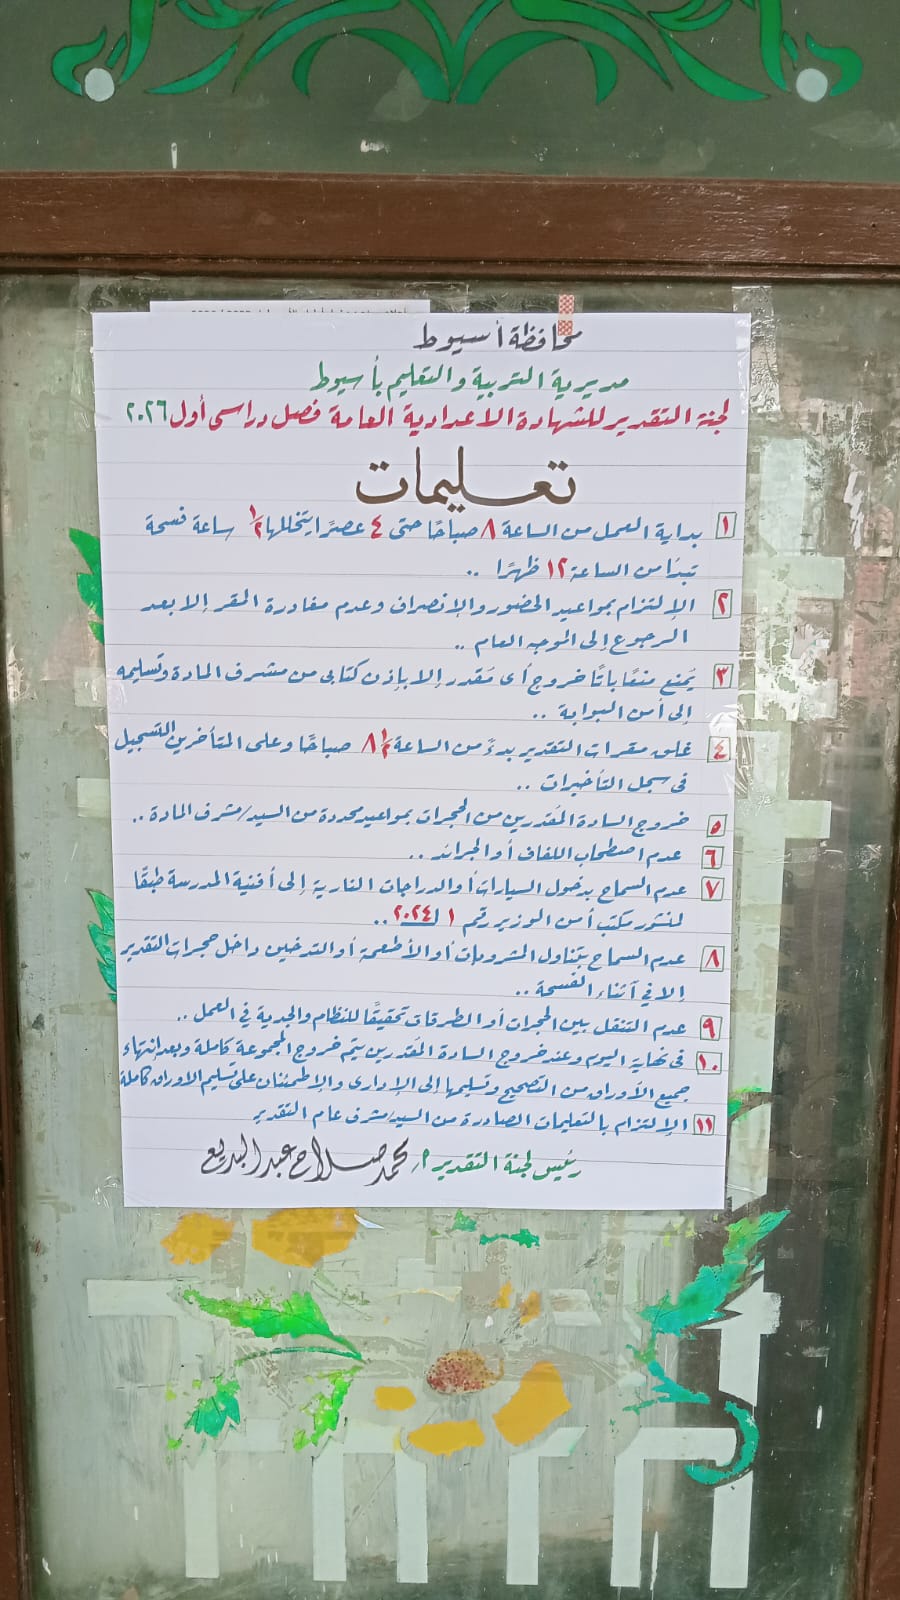 محافظة أسيوط
مديرية التربية والتعليم بأسيوط
لجنة التقدير للشهادة الاعدادية العامة فصل دراسى أول ٢٠٢٦
تعليمات
١ بداية العمل من الساعة ٨ صباحًا حتى ٤ عصرًا يتخللها ١/٢ ساعة فسحة
تبدأ من الساعة ١٢ ظهرًا ..
٢ الإلتزام بمواعيد الحضور والإنصراف وعدم مغادرة المقر إلا بعد
الرجوع إلى الموجه العام ..
٣ يُمنع منعًا باتًا خروج أى مُقدر إلا بإذن كتابى من مشرف المادة وتسليمه
إلى أمن البوابة ..
٤ غلق مقرات التقدير بدءً من الساعة ٨ ١/٢ صباحًا وعلى المتأخرين التسجيل
فى سجل التأخيرات ..
٥ خروج السادة المُقدرين من الحجرات بمواعيد محددة من السيد/ مشرف المادة ..
٦ عدم اصطحاب اللفاف أو الجرائد ..
٧ عدم السماح بدخول السيارات أو الدراجات النارية إلى أفنية المدرسة طبقًا
لمنشور مكتب أمن الوزير رقم ١ لـ ٢٠٢٤ ..
٨ عدم السماح بتناول المشروبات أو الأطعمة أو التدخين داخل حجرات التقدير
إلا في أثناء الفسحة ..
٩ عدم التنقل بين الحجرات أو الطرقات تحقيقًا للنظام والجدية في العمل ..
١٠ فى نهاية اليوم وعند خروج السادة المُقدرين يتم خروج المجموعة كاملة وبعد إنتهاء
جميع الأوراق من التصحيح وتسليمها إلى الإدارى والإطمئنان على تسليم الاوراق كاملة
١١ الإلتزام بالتعليمات الصادرة من السيد/ مشرف عام التقدير
رئيس لجنة التقدير أ/ محمد صلاح عبد البديع